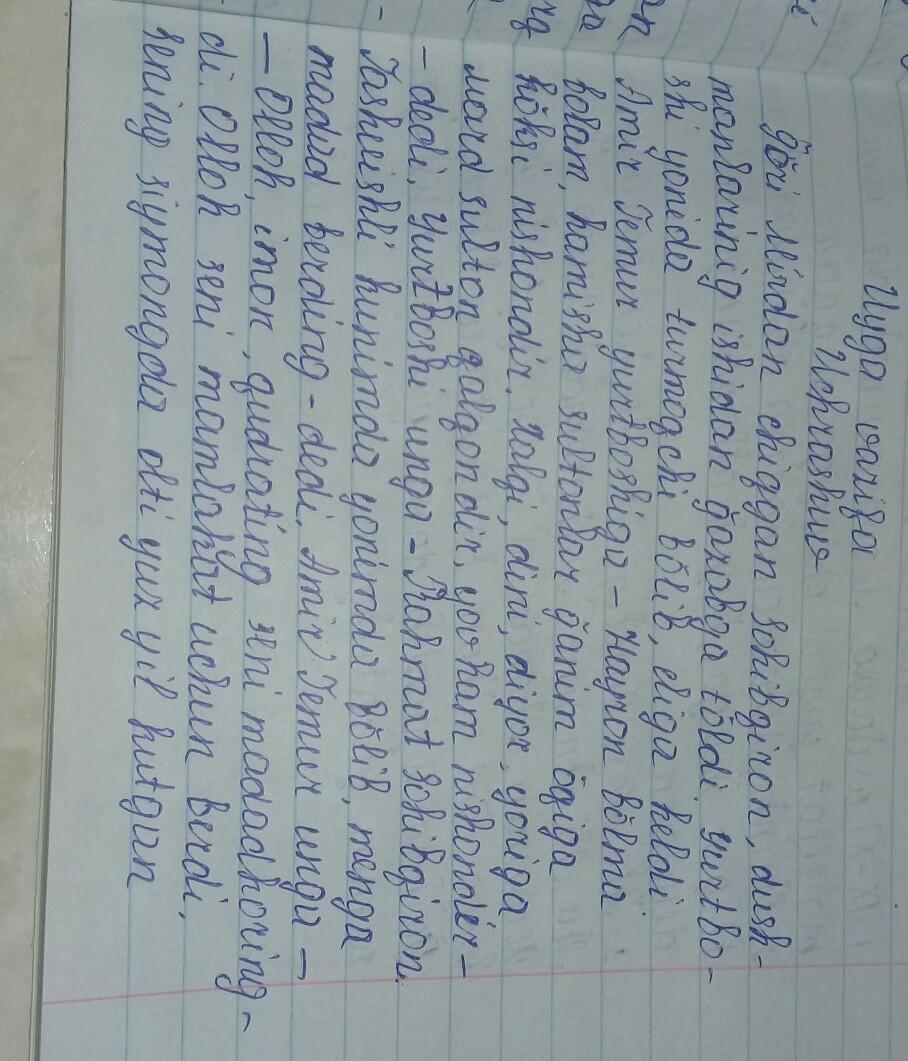 Uyga vazifa
Uchrashuv
Gōri Mirdan chiqqan sohibqiron, dush-
manlarinig ishidan ğazabga tōldi yurtbo-
shi yonida turmoqchi bōlib, eliga keldi
Amir Temur yurtboshiga - Hayron bōlma
bolam, hamisha sultonlar ğanim ōqiga
kōksi nishondir. Xalqi, dini, diyor, yoriga
mard sulton qalqondir, yov ham nishondir -
- dedi. Yurtboshi unga - Rahmat sohibqiron.
Tashvishli kunimda yonimda bōlib, menga
madad berding - dedi. Amir Temur unga -
- Olloh, imon, qudrating seni madadkoring -
di. Olloh seni mamlakat uchun berdi,
sening siymongda olti yuz yil kutgan